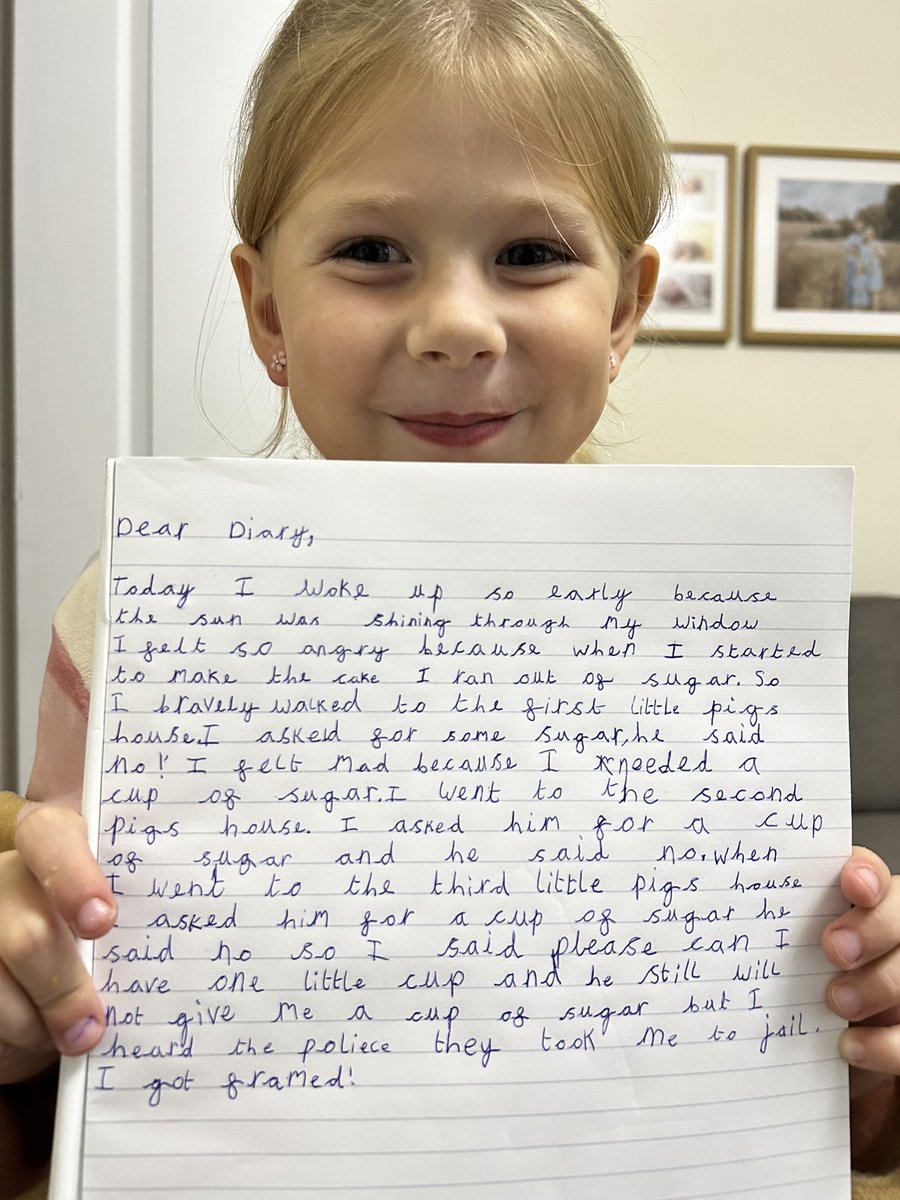 Dear Diary,
Today I woke up so early because
the sun was shining through my window
I felt so angry because when I started
to make the cake I ran out of sugar. So
I bravely walked to the first little pigs
house. I asked for some sugar, he said
no!' I felt mad because I needed a
cup of sugar. I went to the second
pigs house. I asked him for a cup
of sugar and he said no. when
I went to the third little pigs house
I asked him for a cup of sugar he
said no so I said please can I
have one little cup and he still will
not give me a cup of sugar but I
heard the poliece they took me to jail.
I got framed!